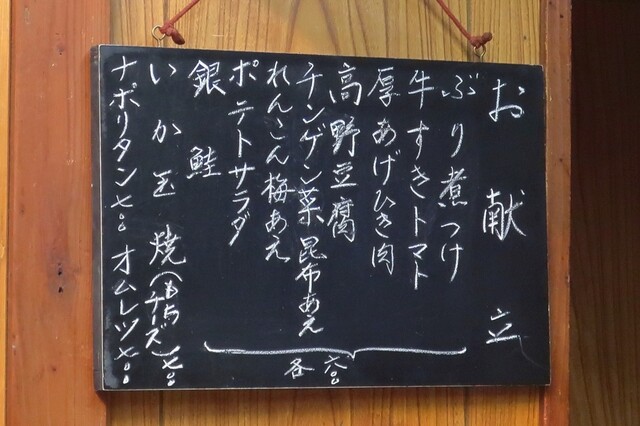 お献立
ぶり煮つけ
牛すきトマト
厚あげひき肉
高野豆腐
チンゲン菜昆布あえ
れんこん梅あえ
ポテトサラダ
銀鮭
各六〇〇
いか玉焼(もちチーズ)七〇〇
ナポリタン七〇〇 オムレツ七〇〇